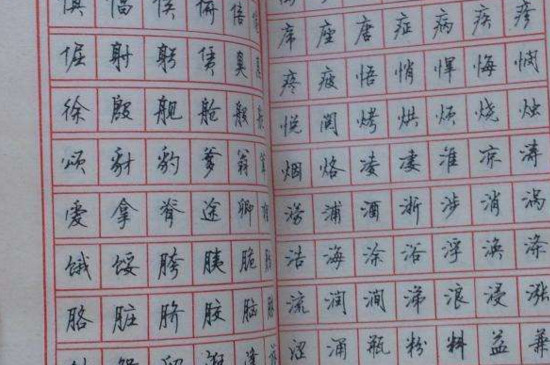 倨 射 躬 倩 臭
徐 殷 舰 舱 般
颂 豺 豹 爹 翁
爱 拿 脊 途 卿
饿 馁 胯 胰 脆
胳 脏 脐 胶 脑
席 座 唐 症 病 疾 疹
疼 疲 悟 悄 悍 悔 悯
悦 阅 烤 烘 烦 烧 烛
烟 烙 凌 凄 淮 凉 涛
涝 浦 酒 浙 涉 消 涡
浩 海 涂 浴 浮 涣 涤
流 润 涧 涕 浪 浸 涨
涩 涌 瓶 粉 料 益 兼